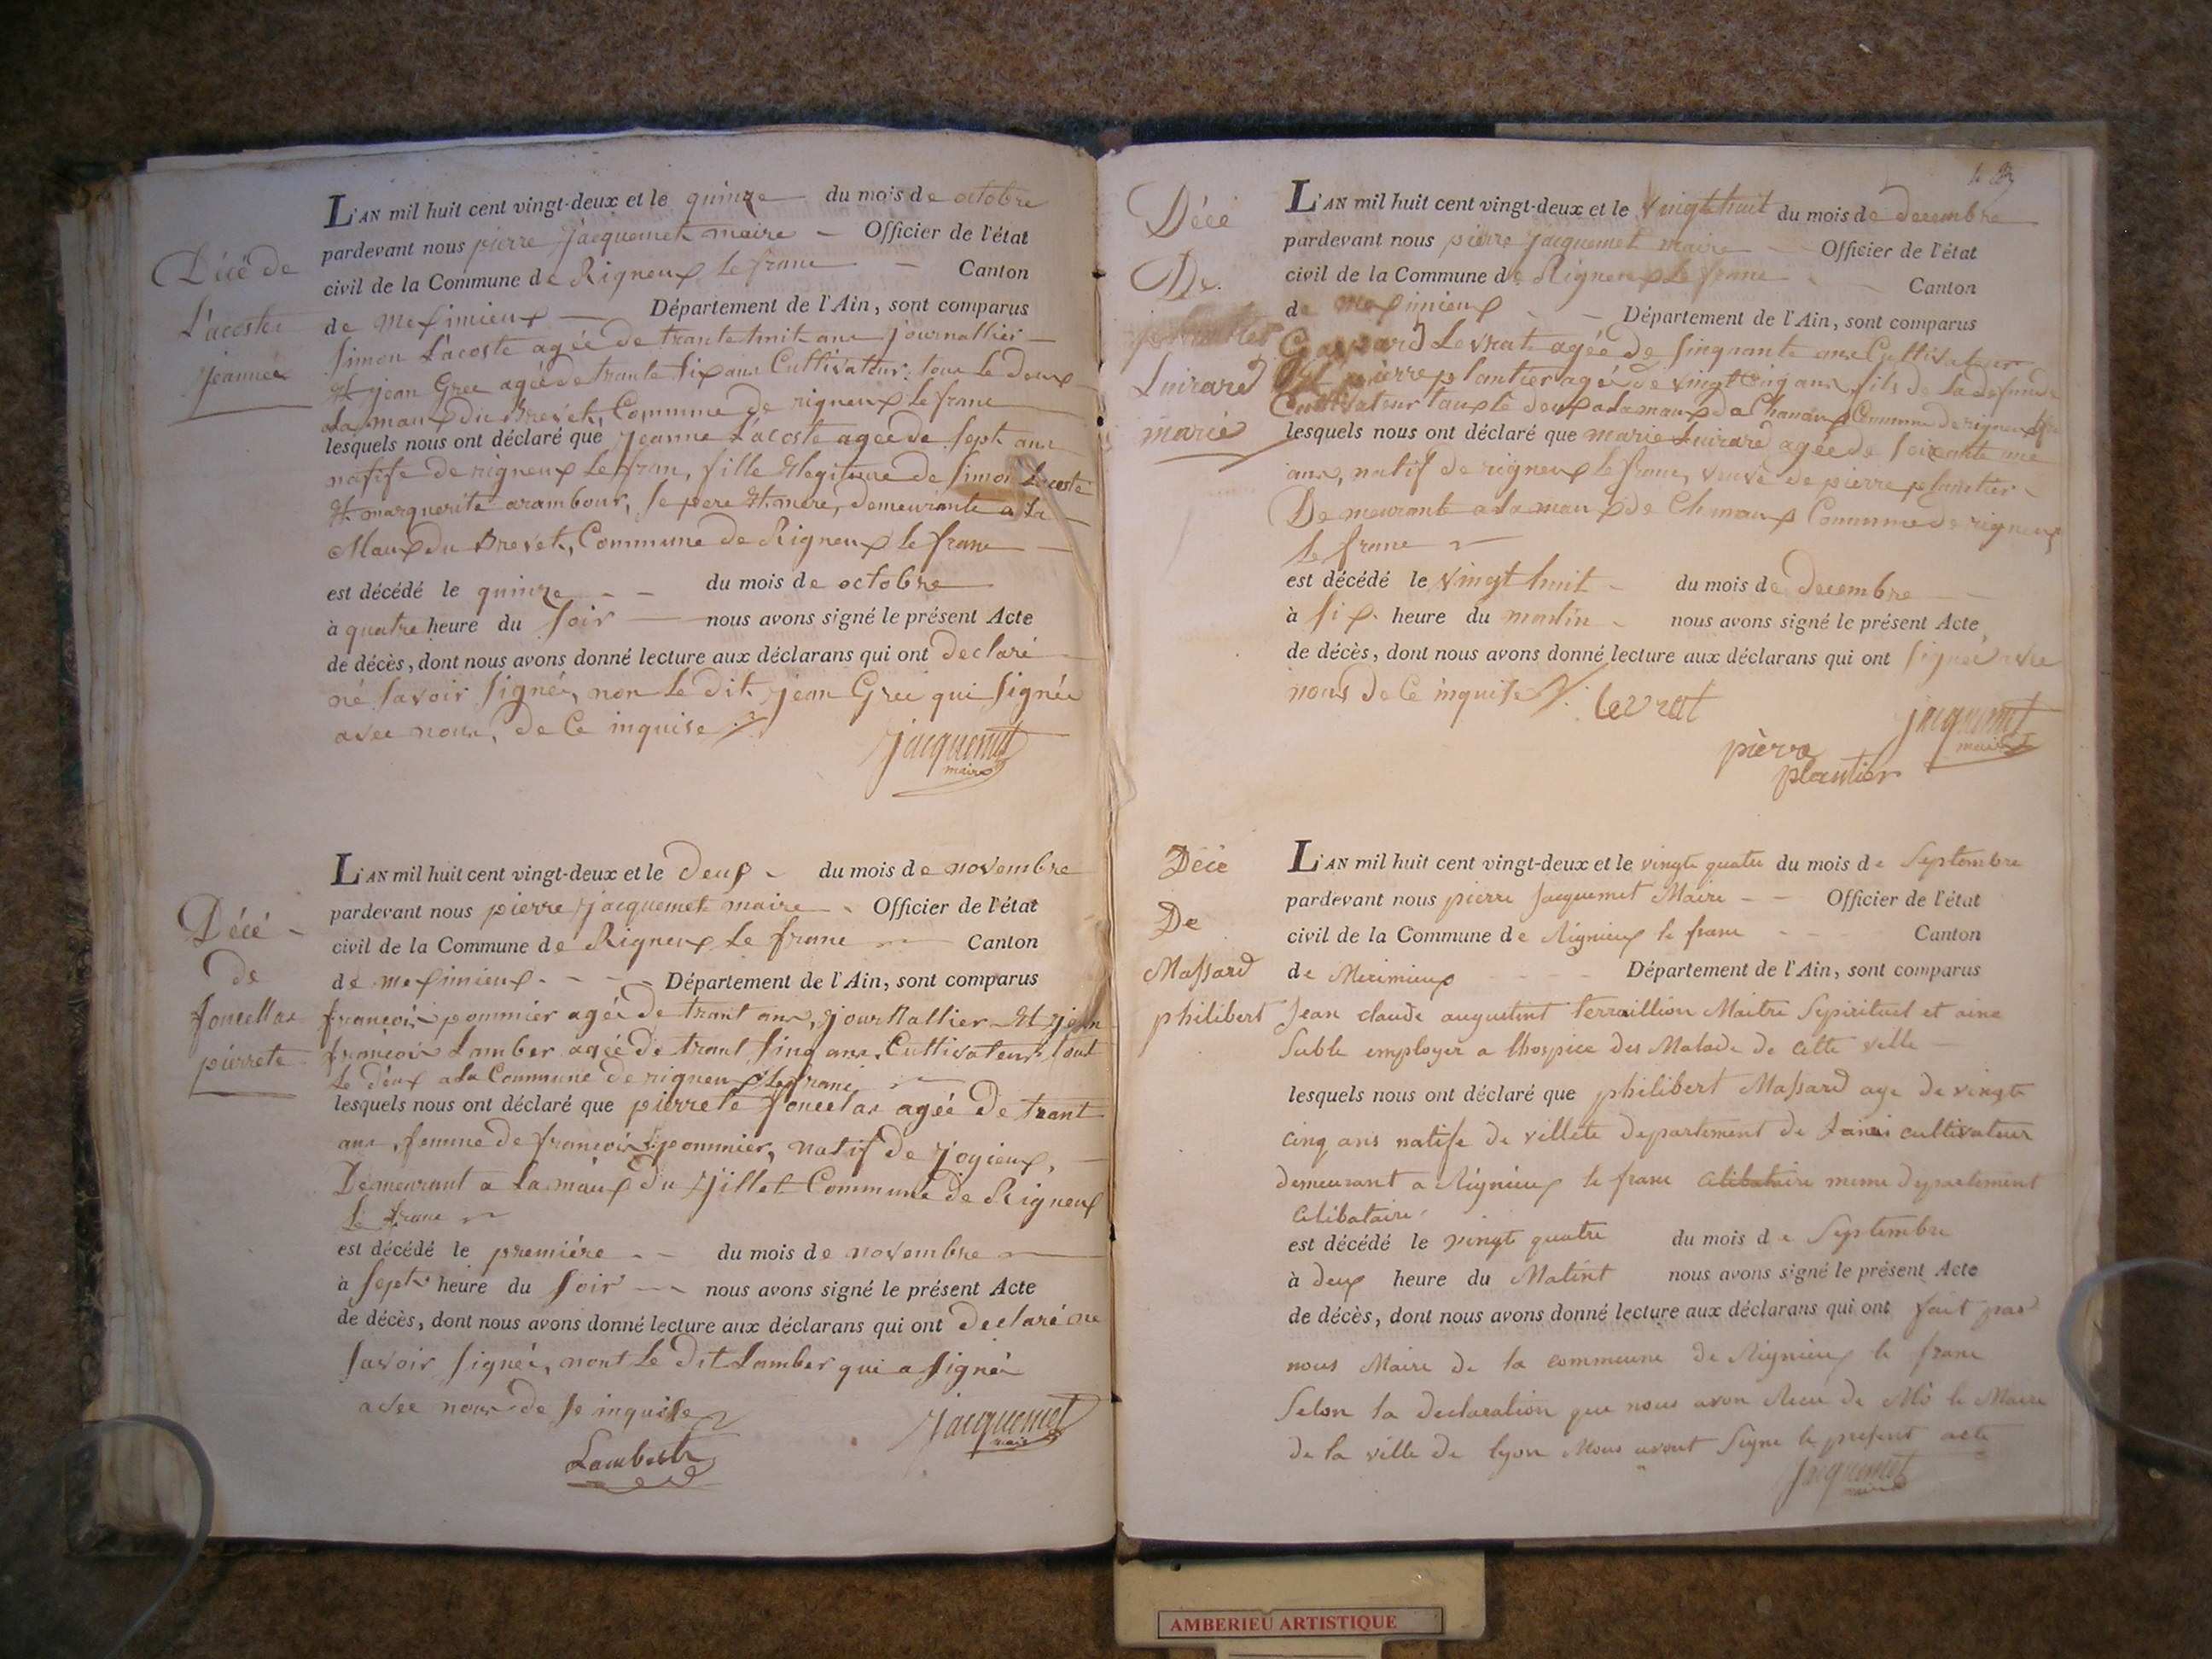 Décé de
L'acoste
jeanne
L'AN mil huit cent vingt-deux et le quinze du mois de octobre
pardevant nous pierre jacquemet maire Officier de l'état
civil de la Commune de Rigneux le franc Canton
de meximieux Département de l'Ain, sont comparus
simon L'acoste agée de trante huit ans journallier
et jean Gree agée de trante six ans Cultivateur tous le deux
a la maux du Brevet, Commune de rigneux le franc
lesquels nous ont déclaré que jeanne L'acoste agée de sept ans
natife de rigneux le fran, fille legitime de simon L'acoste
et marguerite arambour, se pere et mere, demeurante a la
Maux du Brevet, Commune de Rigneux le franc
est décédé le quinze du mois de octobre
à quatre heure du soir nous avons signé le présent Acte
de décès, dont nous avons donné lecture aux déclarans qui ont declaré
né savoir signée, non le dit jean Gree qui signée
avec nous, de ce inquise
jacquemet
maire
Décé
de
foncellas
pierrete
L'AN mil huit cent vingt-deux et le deux du mois de novembre
pardevant nous pierre jacquemet maire Officier de l'état
civil de la Commune de Rigneux le franc Canton
de meximieux Département de l'Ain, sont comparus
francois pommier agée de trant ans, journallier et jean
francois Lamber agée de trant sinq ans, Cultivateur tout
le deux a la Commune de rigneux le franc
lesquels nous ont déclaré que pierrete foncelas agée de trant
ans, femme de francois pommier, natif de joyieux,
Demeurant a la maux du jillet Commune de Rigneux
le franc
est décédé le premiére du mois de novembre
à sept heure du soir nous avons signé le présent Acte
de décès, dont nous avons donné lecture aux déclarans qui ont declaré ne
savoir signée, nont le dit Lamber qui a signée
avec nous de se inquise
Lambert
jacquemet
maire
Décé
De
Luirard
marie
L'AN mil huit cent vingt-deux et le vingt huit du mois de decembre
pardevant nous pierre jacquemet maire Officier de l'état
civil de la Commune de Rigneux le franc Canton
de meximieux Département de l'Ain, sont comparus
Gaspard Levrat agée de sinquante ans Cultivateur
Et pierre plantier agée de vingt cinq ans fils de la defunde
Cultivateur tous le deux a la maux de Chanaux Commune de rigneux
lesquels nous ont déclaré que marie Luirard agée de soixante une
ans, natif de rigneux le franc, veuve de pierre plantier
Demeurant a la maux de Chanaux Commune de rigneux
le franc
est décédé le vingt huit du mois de decembre
à six heure du matin nous avons signé le présent Acte
de décès, dont nous avons donné lecture aux déclarans qui ont signée avec
nous de ce inquise levrat
jacquemet
maire
pièrre
plantier
Décé
De
Massard
philibert
L'AN mil huit cent vingt-deux et le vingt quatre du mois de Septembre
pardevant nous pierre Jacquemet Maire Officier de l'état
civil de la Commune de Rignieux le franc Canton
de Meximieux Département de l'Ain, sont comparus
Jean claude augustint terraillion Maitre Spirituel et aine
Suble employer a lhospice des Malade de cette ville
lesquels nous ont déclaré que philibert Massard age de vingt
cinq ans natife de villete departement de Lain cultivateur
demeurant a Rignieux le franc celibataire meme departement
celibataire
est décédé le vingt quatre du mois de Septembre
à deux heure du Matint nous avons signé le présent Acte
de décès, dont nous avons donné lecture aux déclarans qui ont fait par
nous Maire de la commeune de Rignieux le franc
Selon la declaration que nous avon Recu de Mr le Maire
de la ville de lyon Nous avont Signe le present acte
jacquemet
maire
AMBERIEU ARTISTIQUE